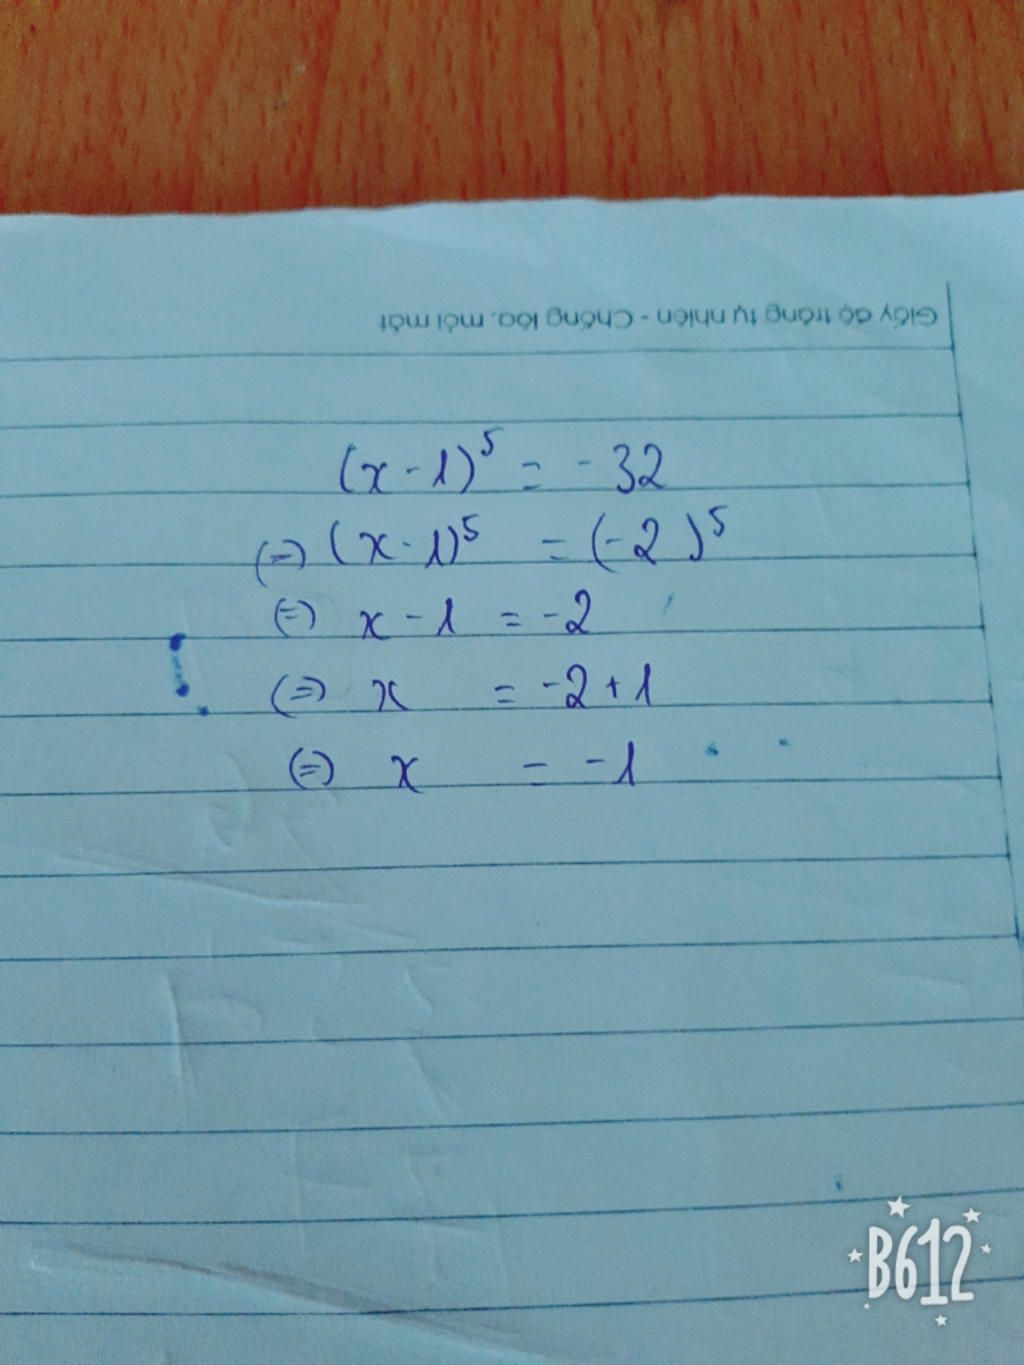 Giấy độ trắng tự nhiên - Chống lóa, mỏi mắt
(x - 1)⁵ = - 32
(=) (x - 1)⁵ = (-2)⁵
(=) x - 1 = -2
(=) x = -2 + 1
(=) x = -1
B612